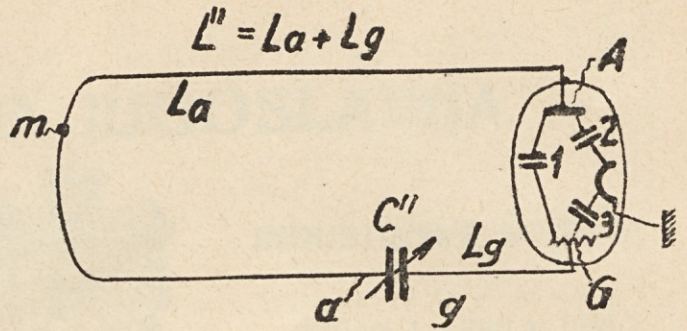 L" = La + Lg
A
La
m
1
2
3
C"
Lg
a
g
G